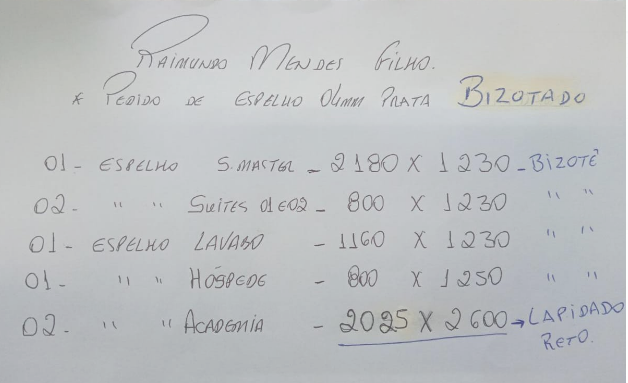 RAIMUNDO MENDES FILHO.
* PEDIDO DE ESPELHO 04MM PRATA BIZOTADO
01- ESPELHO S.MASTER - 2180 X 1230 - BIZOTÊ
02- " " SUÍTES 01E02 - 800 X 1230 " "
01- ESPELHO LAVABO - 1160 X 1230 " "
01- " " HÓSPEDE - 800 X 1250 " "
02- " " ACADEMIA - 2025 X 2600 → LAPIDADO
RETO.